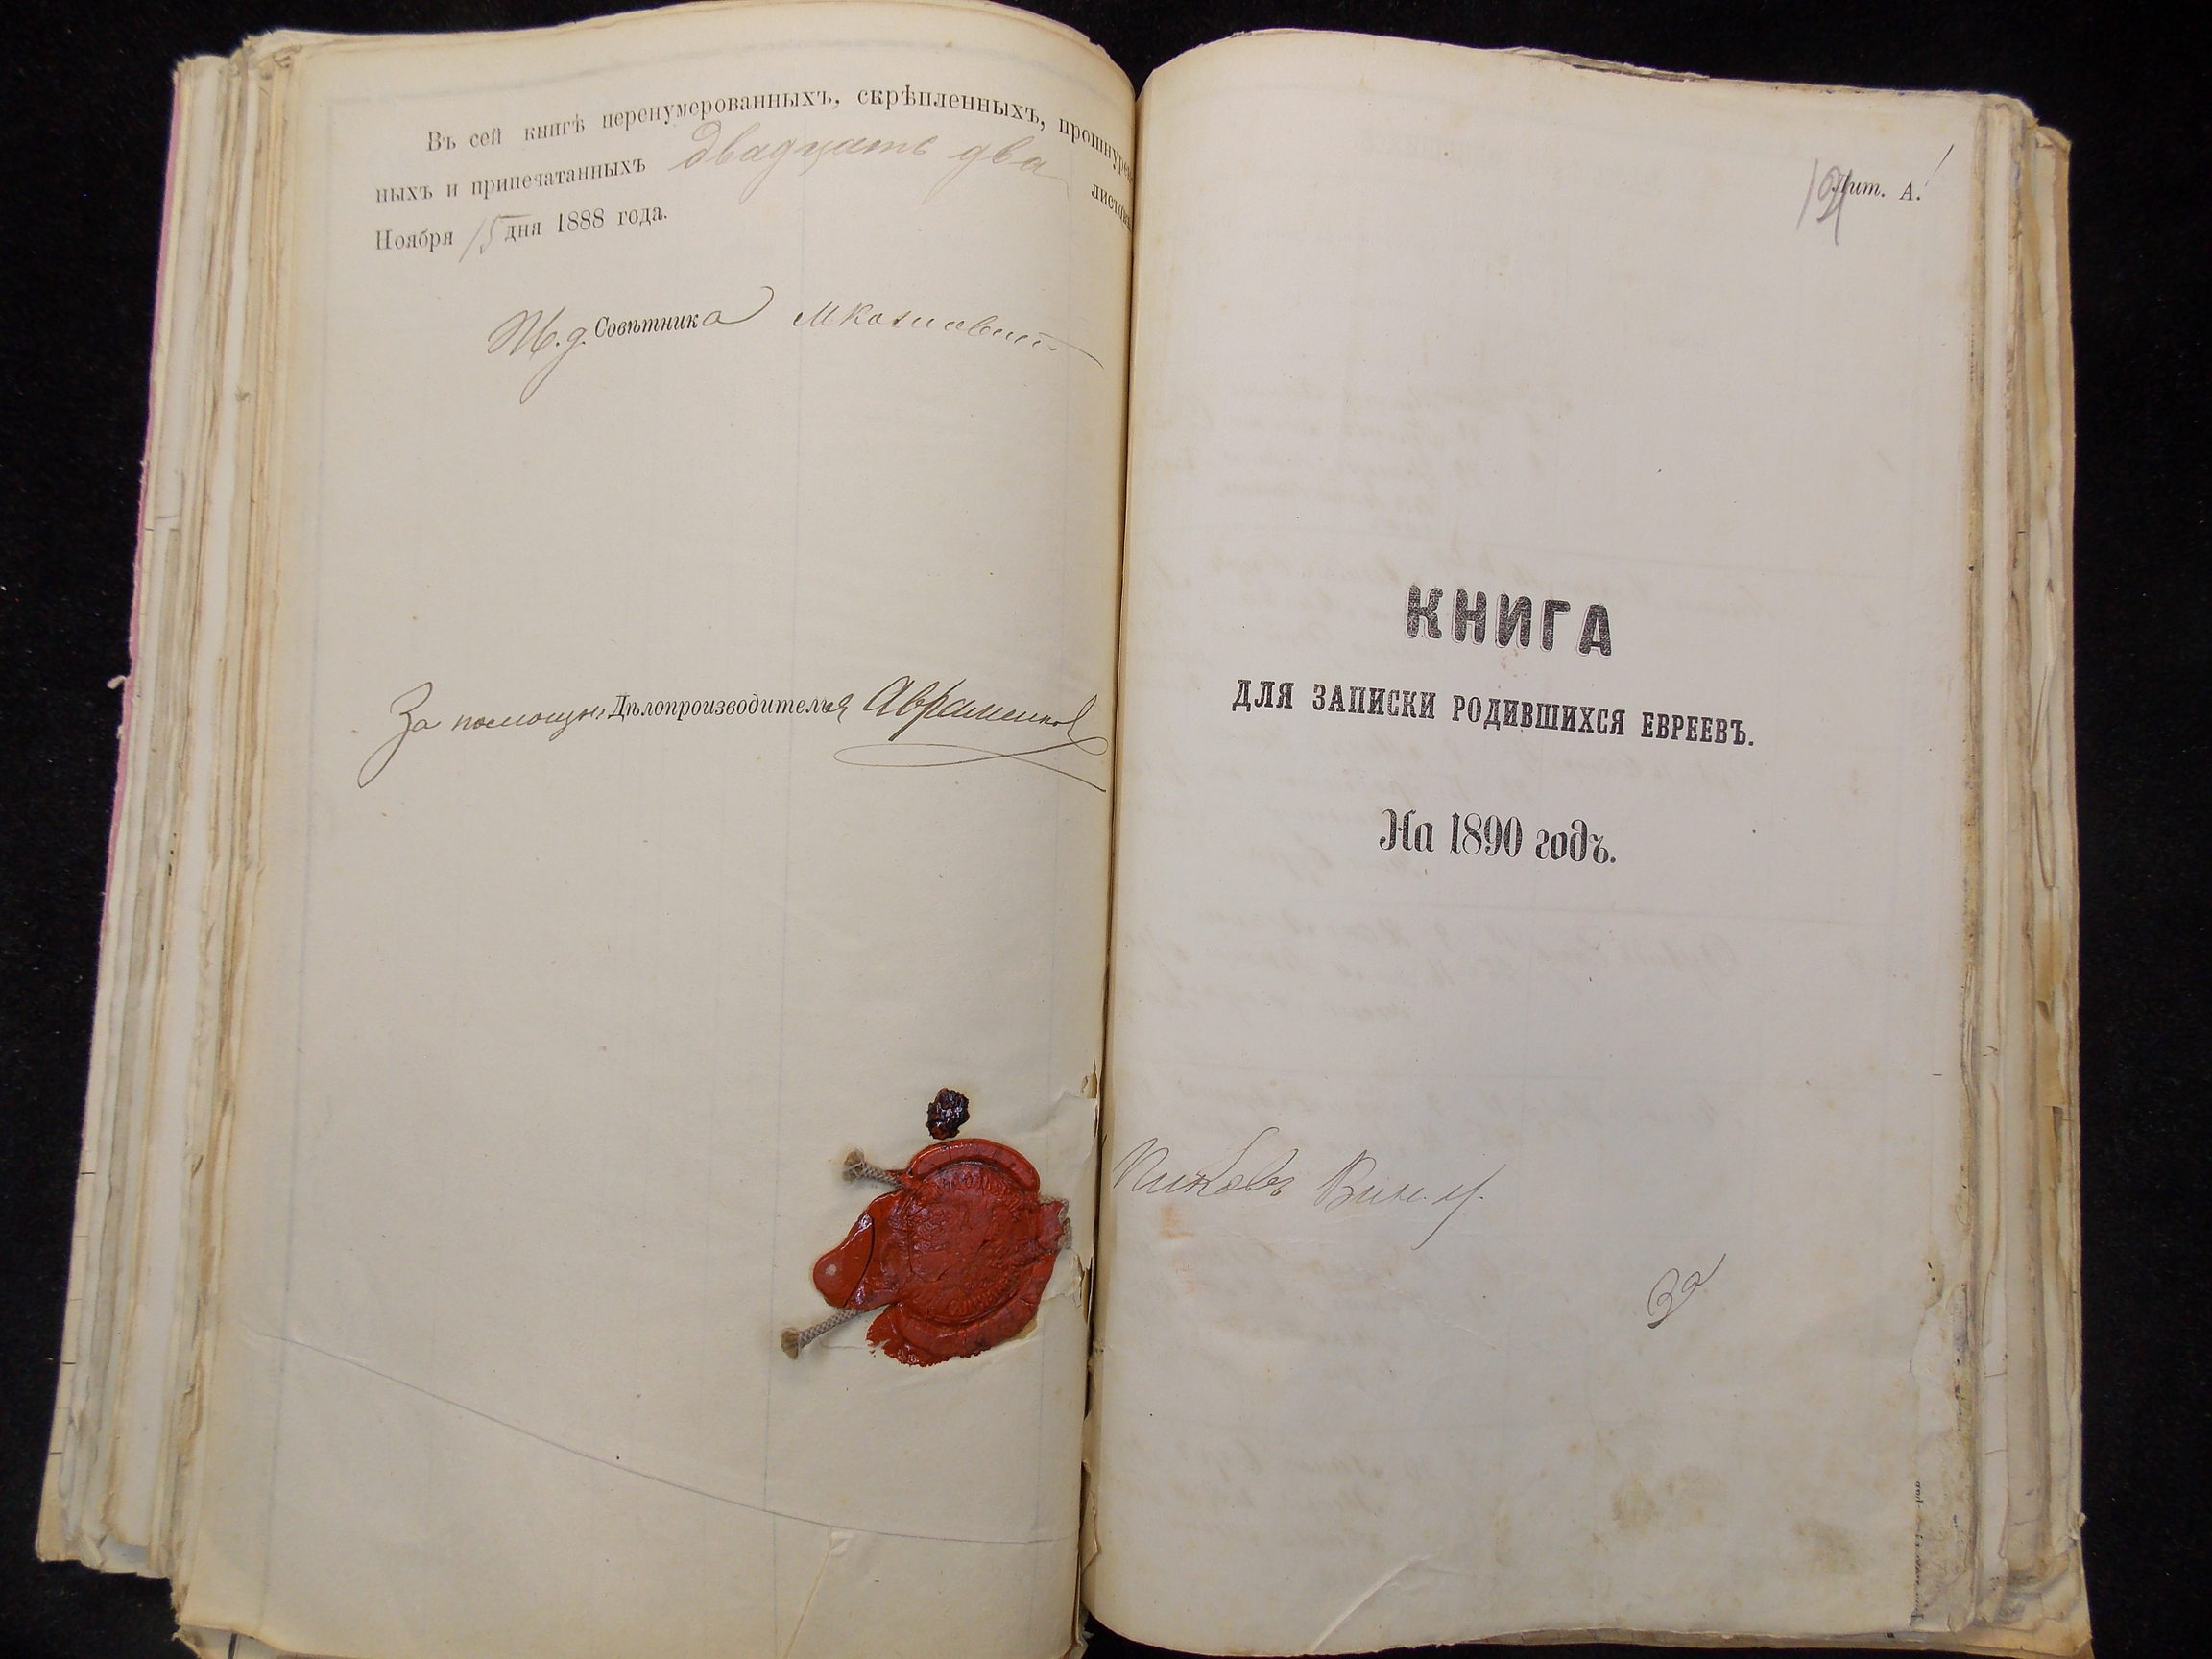 Въ сей книгѣ перенумерованныхъ, скрѣпленныхъ, прошнуро
ныхъ и припечатанныхъ двадцать два листовъ
Ноября 15 дня 1888 года.
И.д. Совѣтника
За помощн. Дѣлопроизводителя Авраменко
Лит. А.
1
КНИГА
ДЛЯ ЗАПИСКИ РОДИВШИХСЯ ЕВРЕЕВЪ.
На 1890 годъ.
Пиковъ Вин. у.